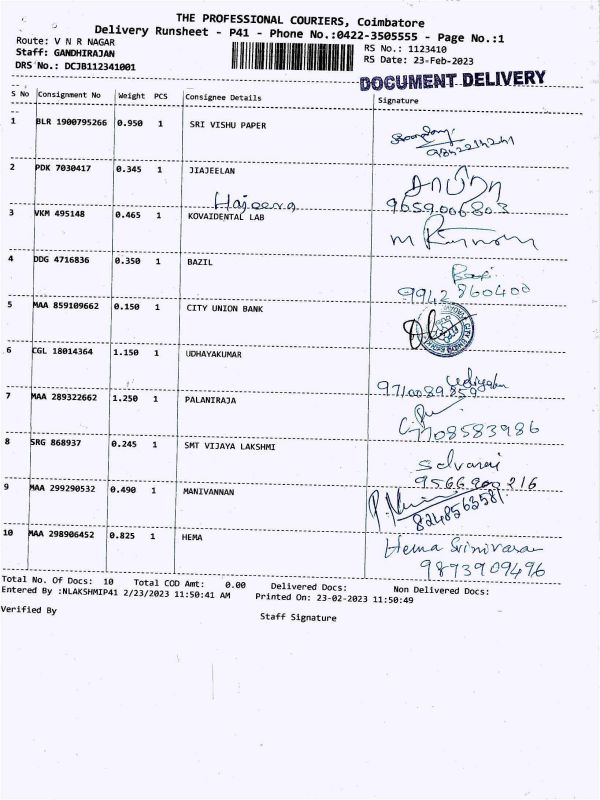 THE PROFESSIONAL COURIERS, Coimbatore
Delivery Runsheet - P41 - Phone No.:0422-3505555 - Page No.:1
Route: V N R NAGAR RS No.: 1123410
Staff: GANDHIRAJAN RS Date: 23-Feb-2023
DRS No.: DCJB112341001
DOCUMENT DELIVERY
S No Consignment No Weight PCS Consignee Details Signature
1 BLR 1900795266 0.950 1 SRI VISHU PAPER
2 PDK 7030417 0.345 1 JIAJEELAN
Hajeera 9659006803
3 VKM 495148 0.465 1 KOVAIDENTAL LAB
4 DDG 4716836 0.350 1 BAZIL
9942 860400
5 MAA 859109662 0.150 1 CITY UNION BANK
6 CGL 18014364 1.150 1 UDHAYAKUMAR
9710089859
7 MAA 289322662 1.250 1 PALANIRAJA
8 SRG 868937 0.245 1 SMT VIJAYA LAKSHMI
Selvaraj
9 MAA 299290532 0.490 1 MANIVANNAN
8248563581
10 MAA 298906452 0.825 1 HEMA
Hema Srinivasan
9893909496
Total No. Of Docs: 10 Total COD Amt: 0.00 Delivered Docs: Non Delivered Docs:
Entered By :NLAKSHMIP41 2/23/2023 11:50:41 AM Printed On: 23-02-2023 11:50:49
Verified By Staff Signature